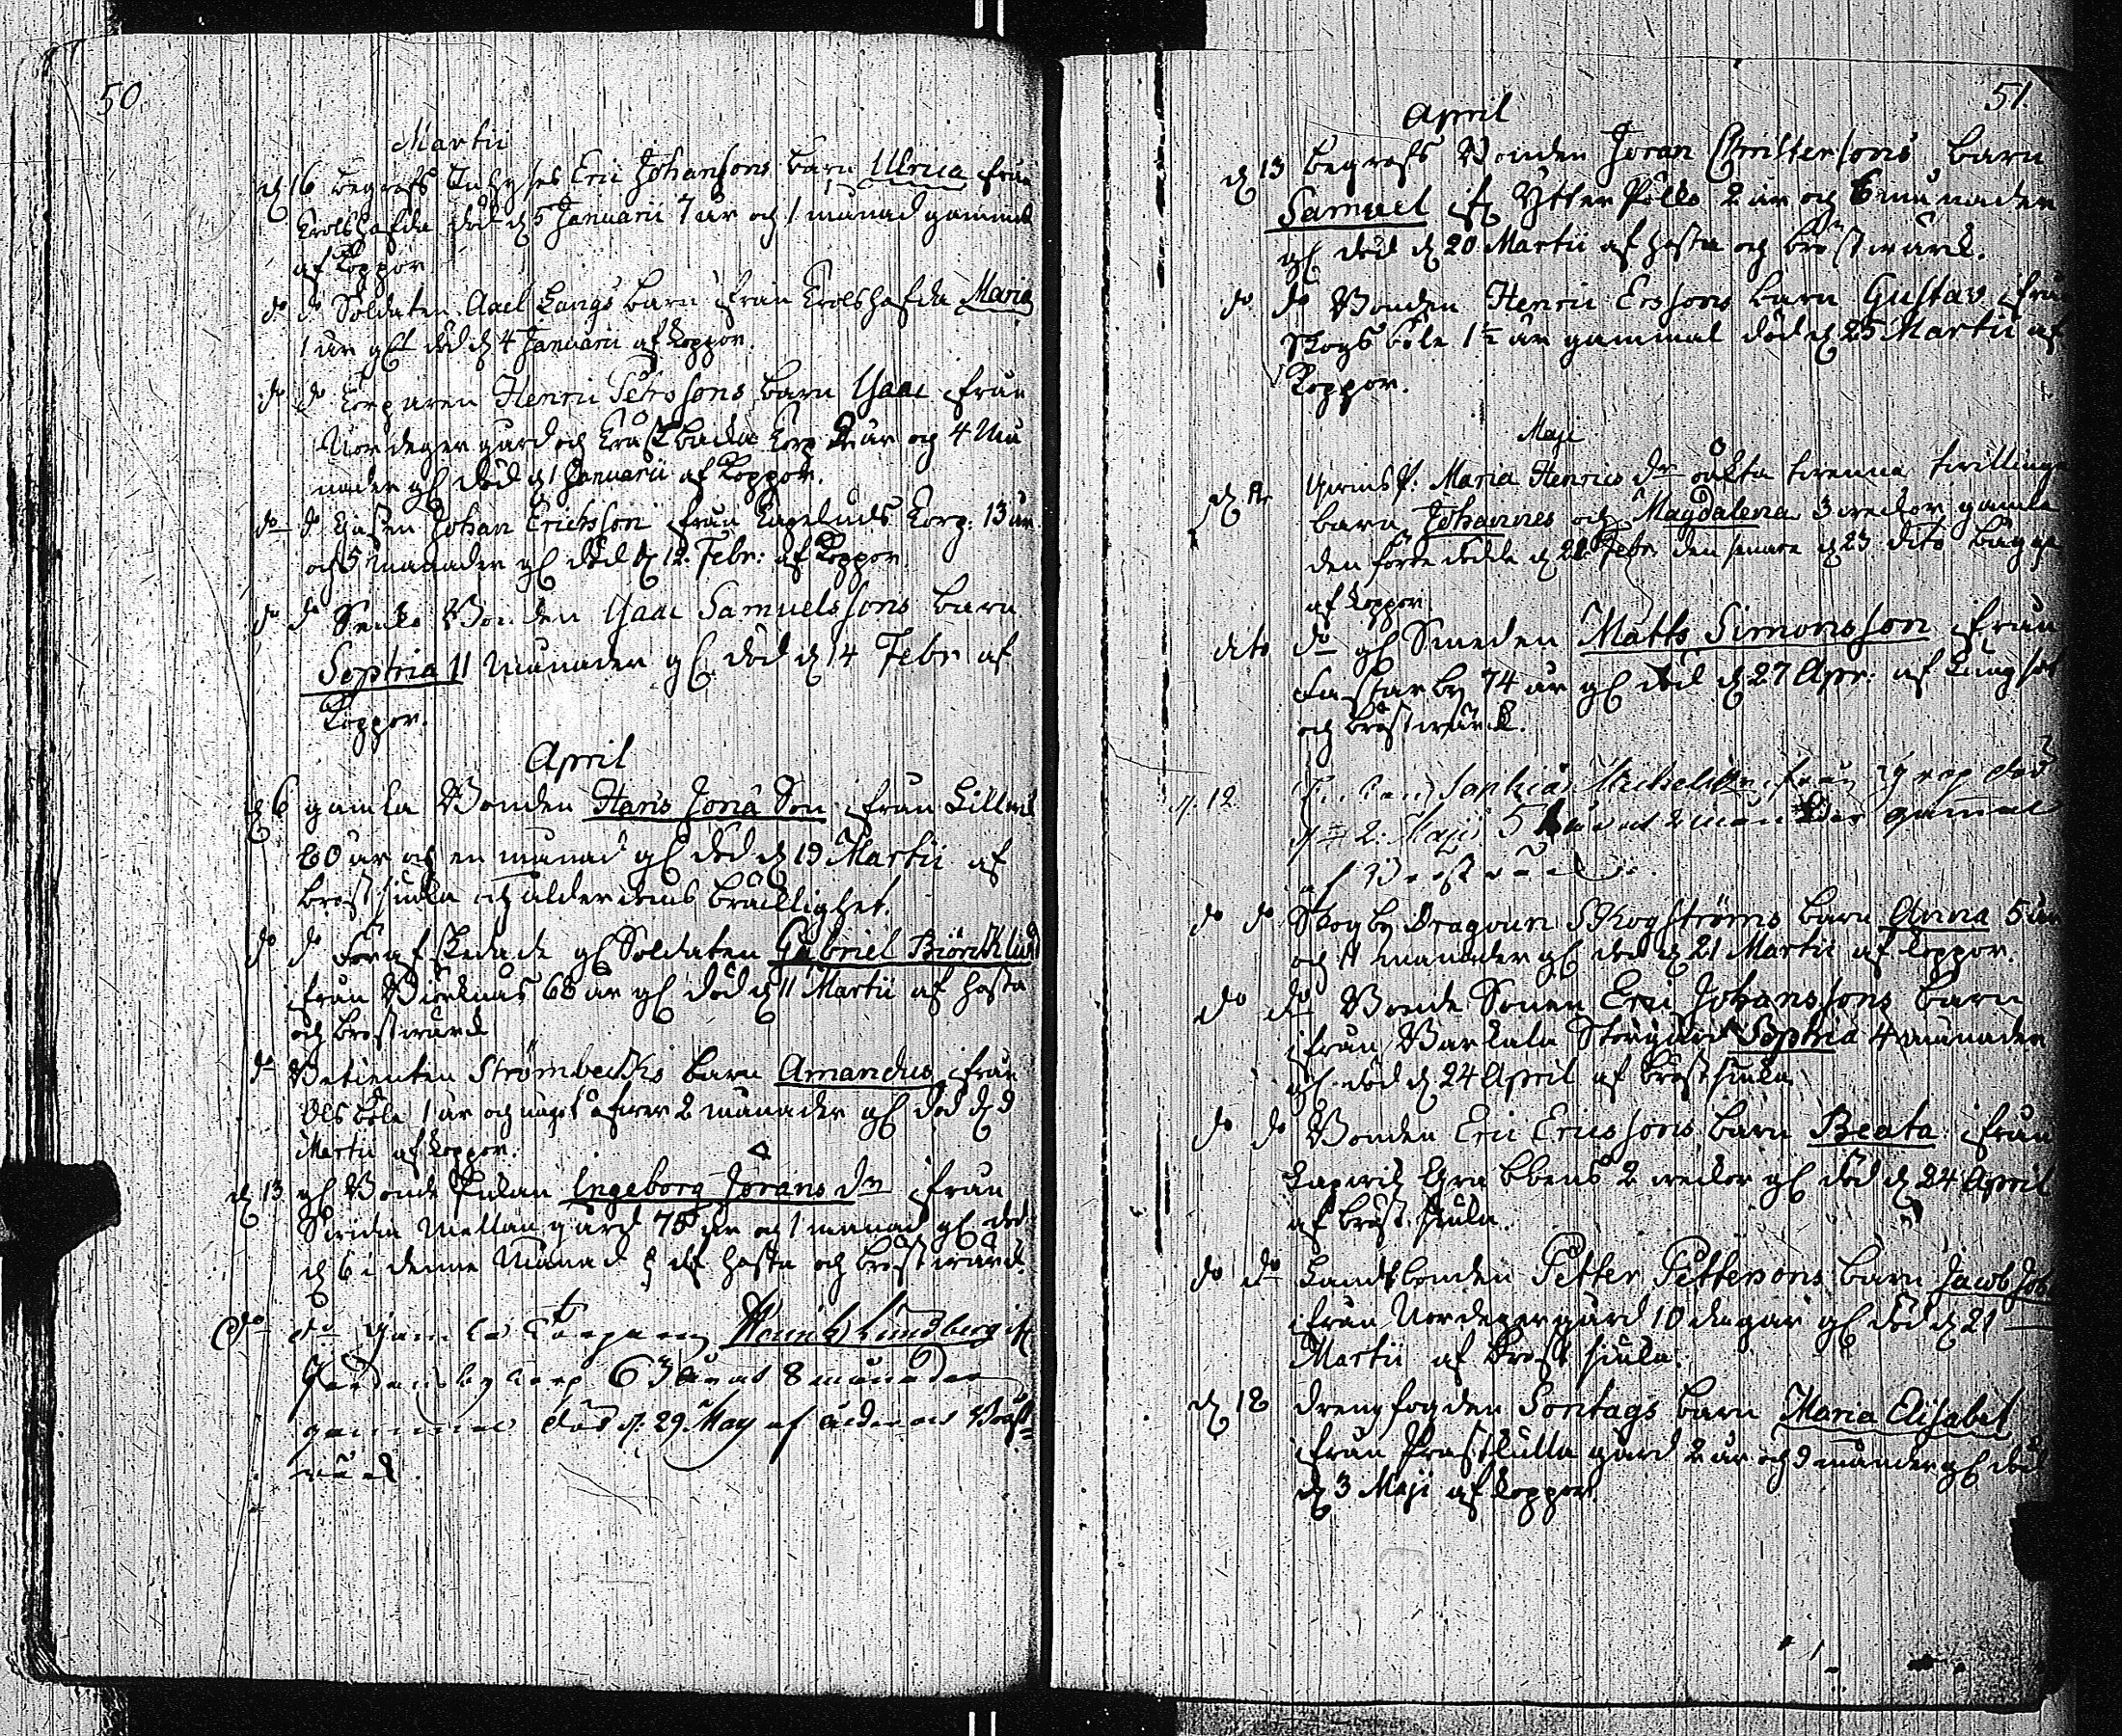 50
Martii
d 16 begrofs Eric Johansons barn Ulrica från
död d 5 Januarii 7 år och 1 månad gammal
af koppor
do do Soldaten Axel Langs barn ifrån Maria
1 år gl död d 4 Januarii af koppor.
do do torparen Henric Petrssons barn Isaac ifrån
Nordeger gård och torp 2 år och 4 må
nader gl död d 1 Januarii af koppor.
do do Johan Ericksson från torp: 13 år
och 5 månader gl död d 12. Febr: af koppor.
do do Bonden Isaac Samuelssons barn
Sophia 11 månader gl död d 14 Febr af
koppor.
April
d 6 gamla Bonden Hans Jona Son ifrån
80 år och en månad gl död d 19 Martii af
bröst siuka och ålderdoms bräcklighet.
do do afskedade gl Soldaten Gabriel Biörcklund
ifrån Biörknäs 68 år gl död d 11 Martii af hosta
och bröstwärck
do Strömbecks barn Amandus ifrån
böle 1 år och 2 månader gl död d 9
Martii af koppor.
d 13 gl Bonde Enkan Ingeborg Jörans dr ifrån
Mellangård 75 år och 1 månad gl död
d 6 i denne Månad af hosta och bröstwärck.
do do gamla torparen Lundberg
torp 63 år och 8 månader
gammal död d. 29. May af ålder och Bröst-
wärck.
51.
April
d 13 begrofs Bonden Jöran Christersons barn
Samuel ifr Ytter 2 år och 6 månader
gl död d 20 Martii af hosta och bröstwärck.
do do Bonden Henric Erssons barn Gustav ifrån
Skogsböle 1½ år gammal död d 25 Martii af
koppor.
Maji
Maria Henrics dr oäkta twenne twillinge
barn Johannes och Magdalena 3 weckor gamla
den förre dödde d Febr. den senare d 23 dito bägge
af koppor.
dito do gl Smeden Matts Simonsson ifrån
by 74 år gl död d 27 Apr. af Lungsot
och bröstwärck.
d. 12. Sophia Michels dr från död
d 2. Maji 5 år och 2 månader gammal
af Bröstwärck.
do do Skogby Dragoun Skogströms barn Anna 5 år
och 11 månader gl död d 21 Martii af koppor.
do do Bonde Sonen Eric Johanssons barn
ifrån Storgård Sophia 4 månader
gl död d 24 April af bröstsiuka
do do Bonden Eric Ericssons barn Beata ifrån
2 weckor gl död d 24 April
af bröst siuka.
do do Landtbonden Petter Pettersons barn Jacob Joh
ifrån Nordegergård 10 dagar gl död d 21
Martii af bröst siuka.
d 18 drengfogden Sontags barn Maria Elisabet
ifrån Prästkulla gård 2 år och 9 månader gl död
d 3 Maji af koppor.